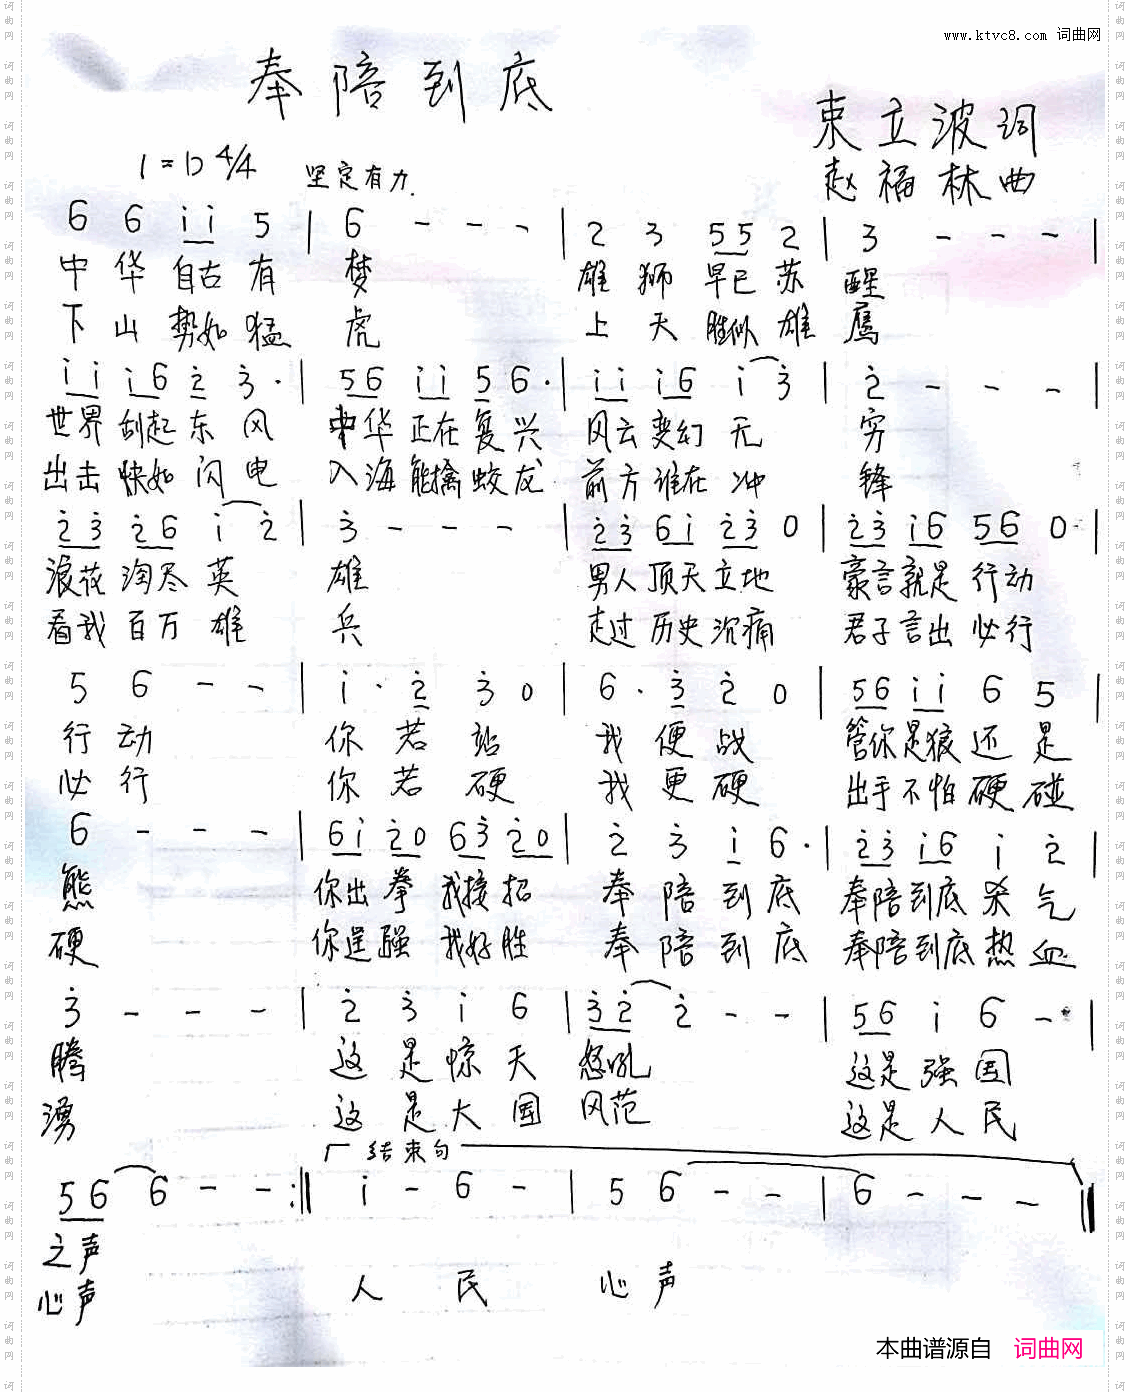 www.ktvc8.com 词曲网
奉陪到底
束立波词
1=D 4/4 坚定有力
赵福林曲
6 6 i i 5 | 6 - - - | 2 3 5 5 2 | 3 - - - |
中华自古有梦 雄狮早已苏醒
下山势如猛虎 上天胜似雄鹰
i i i 6 2 3 · | 5 6 i i 5 6 · | i i i 6 i 3 | 2 - - - |
世界刮起东风 中华正在复兴 风云变幻无穷
出击快如闪电 入海能擒蛟龙 前方谁在冲锋
2 3 2 6 i 2 | 3 - - - | 2 3 6 i 2 3 0 | 2 3 i 6 5 6 0 |
浪花淘尽英雄 男人顶天立地 豪言就是行动
看我百万雄兵 走过历史沉痛 君子言出必行
5 6 - - | i · 2 3 0 | 6 · 3 2 0 | 5 6 i i 6 5 |
行动 你若站 我便战 管你是狼还是
必行 你若硬 我更硬 出手不怕硬碰
6 - - - | 6 i 2 0 6 3 2 0 | 2 3 i 6 · | 2 3 i 6 i 2 |
熊 你出拳 我接招 奉陪到底 奉陪到底杀气
硬 你逞强 我好胜 奉陪到底 奉陪到底热血
3 - - - | 2 3 i 6 | 3 2 2 - - | 5 6 i 6 - |
腾 这是惊天怒吼 这是强国
湧 这是大国风范 这是人民
结束句
5 6 6 - - :‖ i - 6 - | 5 6 - - | 6 - - - ‖
之声
心声 人民 心声
本曲谱源自 词曲网